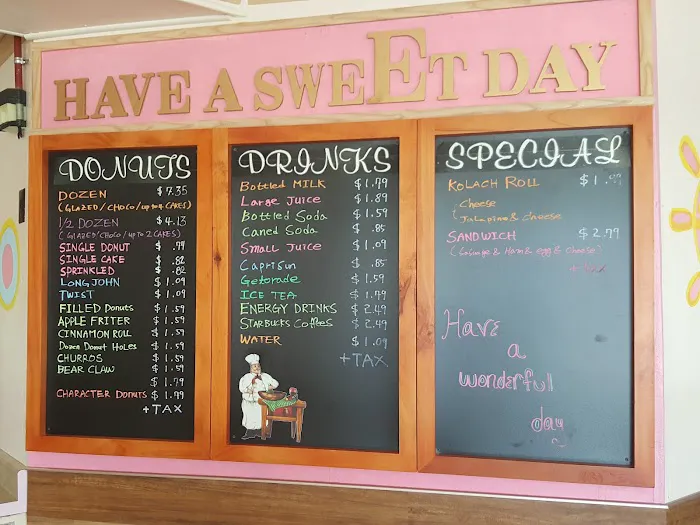 HAVE A SWEET DAY
DONUTS
DOZEN $7.35
(GLAZED/CHOCO/up to 4 CAKES)
1/2 DOZEN $4.13
(GLAZED/CHOCO/up to 2 CAKES)
SINGLE DONUT $ .79
SINGLE CAKE $ .82
SPRINKLED $ .82
LONG JOHN $ 1.09
TWIST $ 1.09
FILLED Donuts $ 1.59
APPLE FRITER $ 1.59
CINNAMON ROLL $ 1.59
Dozen Donut Holes $ 1.59
CHURROS $ 1.59
BEAR CLAW $ 1.59
$ 1.79
CHARACTER Donuts $ 1.99
+ TAX
DRINKS
Bottled MILK $1.79
Large Juice $1.89
Bottled Soda $1.59
Caned Soda $ .85
Small Juice $1.09
CapriSun $ .85
Getorade $1.59
ICE TEA $1.79
ENERGY DRINKS $2.49
STARBUCKS Coffees $2.49
WATER $1.09
+TAX
SPECIAL
KOLACH ROLL $1.
Cheese
Jalapino & cheese
SANDWICH $2.79
& Ham & egg & Cheese)
Have
a
wonderful
day